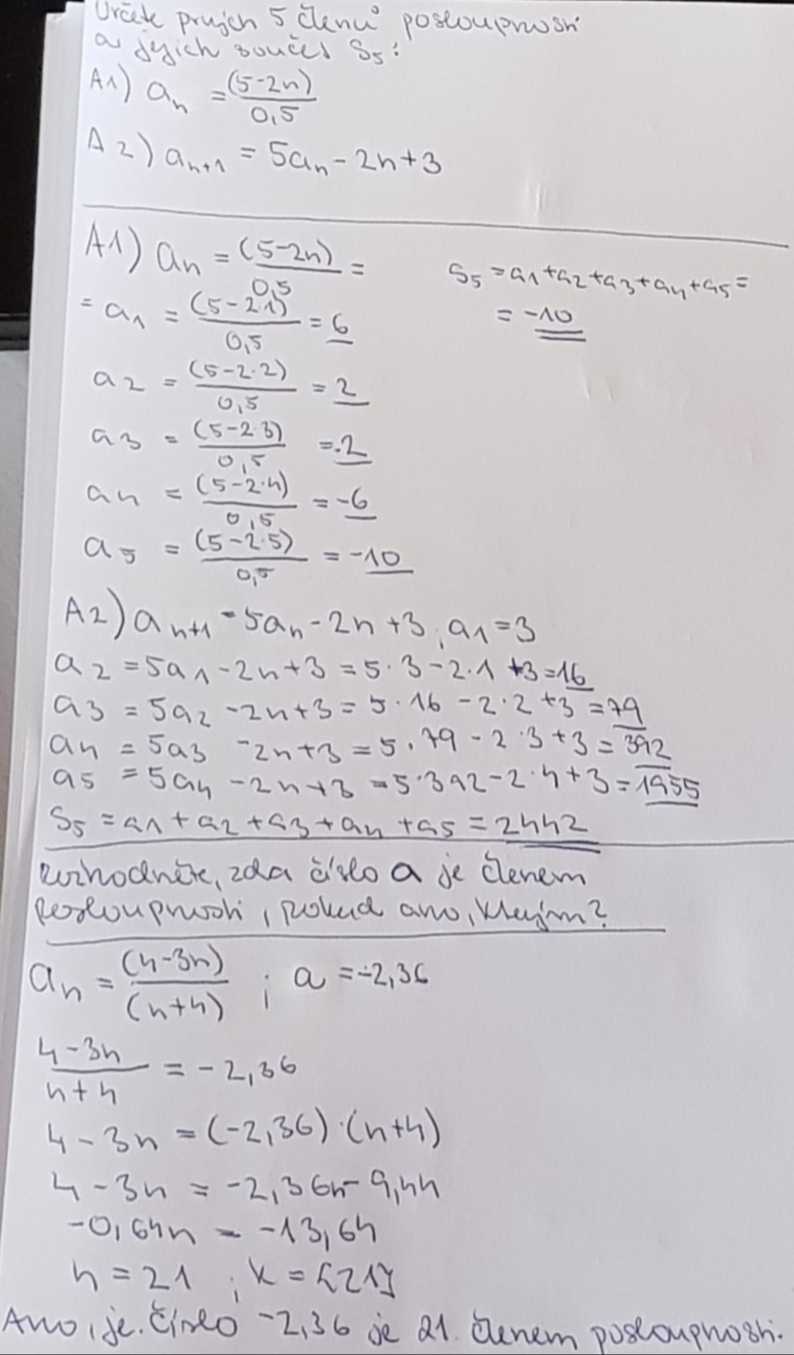 Určete prvých 5 členů posloupnosti
a jejich součet S₅:
A1) aₙ = (5-2n)/0,5
A2) aₙ₊₁ = 5aₙ - 2n + 3
A1) aₙ = (5-2n)/0,5 =
S₅ = a₁+a₂+a₃+a₄+a₅ =
= -10
= a₁ = (5-2·1)/0,5 = 6
a₂ = (5-2·2)/0,5 = 2
a₃ = (5-2·3)/0,5 = -2
a₄ = (5-2·4)/0,5 = -6
a₅ = (5-2·5)/0,5 = -10
A2) aₙ₊₁ = 5aₙ - 2n + 3, a₁ = 3
a₂ = 5a₁ - 2n + 3 = 5·3 - 2·1 + 3 = 16
a₃ = 5a₂ - 2n + 3 = 5·16 - 2·2 + 3 = 79
a₄ = 5a₃ - 2n + 3 = 5·79 - 2·3 + 3 = 392
a₅ = 5a₄ - 2n + 3 = 5·392 - 2·4 + 3 = 1955
S₅ = a₁ + a₂ + a₃ + a₄ + a₅ = 2442
Rozhodněte, zda číslo a je členem
posloupnosti, pokud ano, kterým?
aₙ = (4-3n)/(n+4) ; a = -2,36
(4-3n)/(n+4) = -2,36
4 - 3n = (-2,36)·(n+4)
4 - 3n = -2,36n - 9,44
-0,64n = -13,64
n = 21 ; K = {21}
Ano, je. Číslo -2,36 je 21. členem posloupnosti.